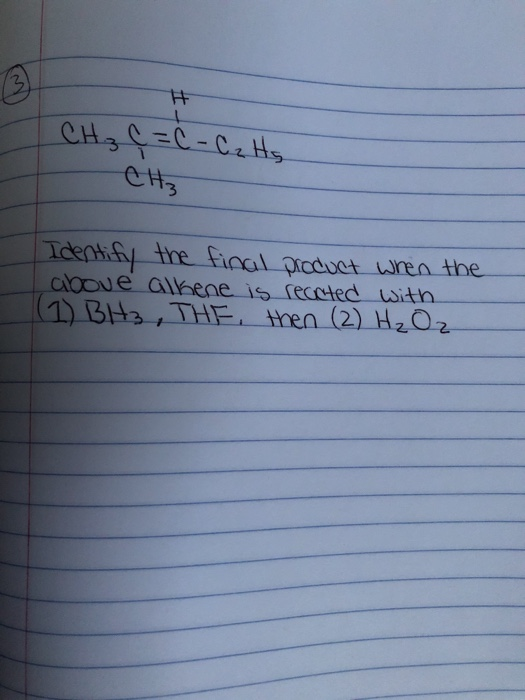 3
H
CH3 C = C - C2H5
CH3
Identify the final product when the
above alkene is recated with
(1) BH3, THF, then (2) H2O2